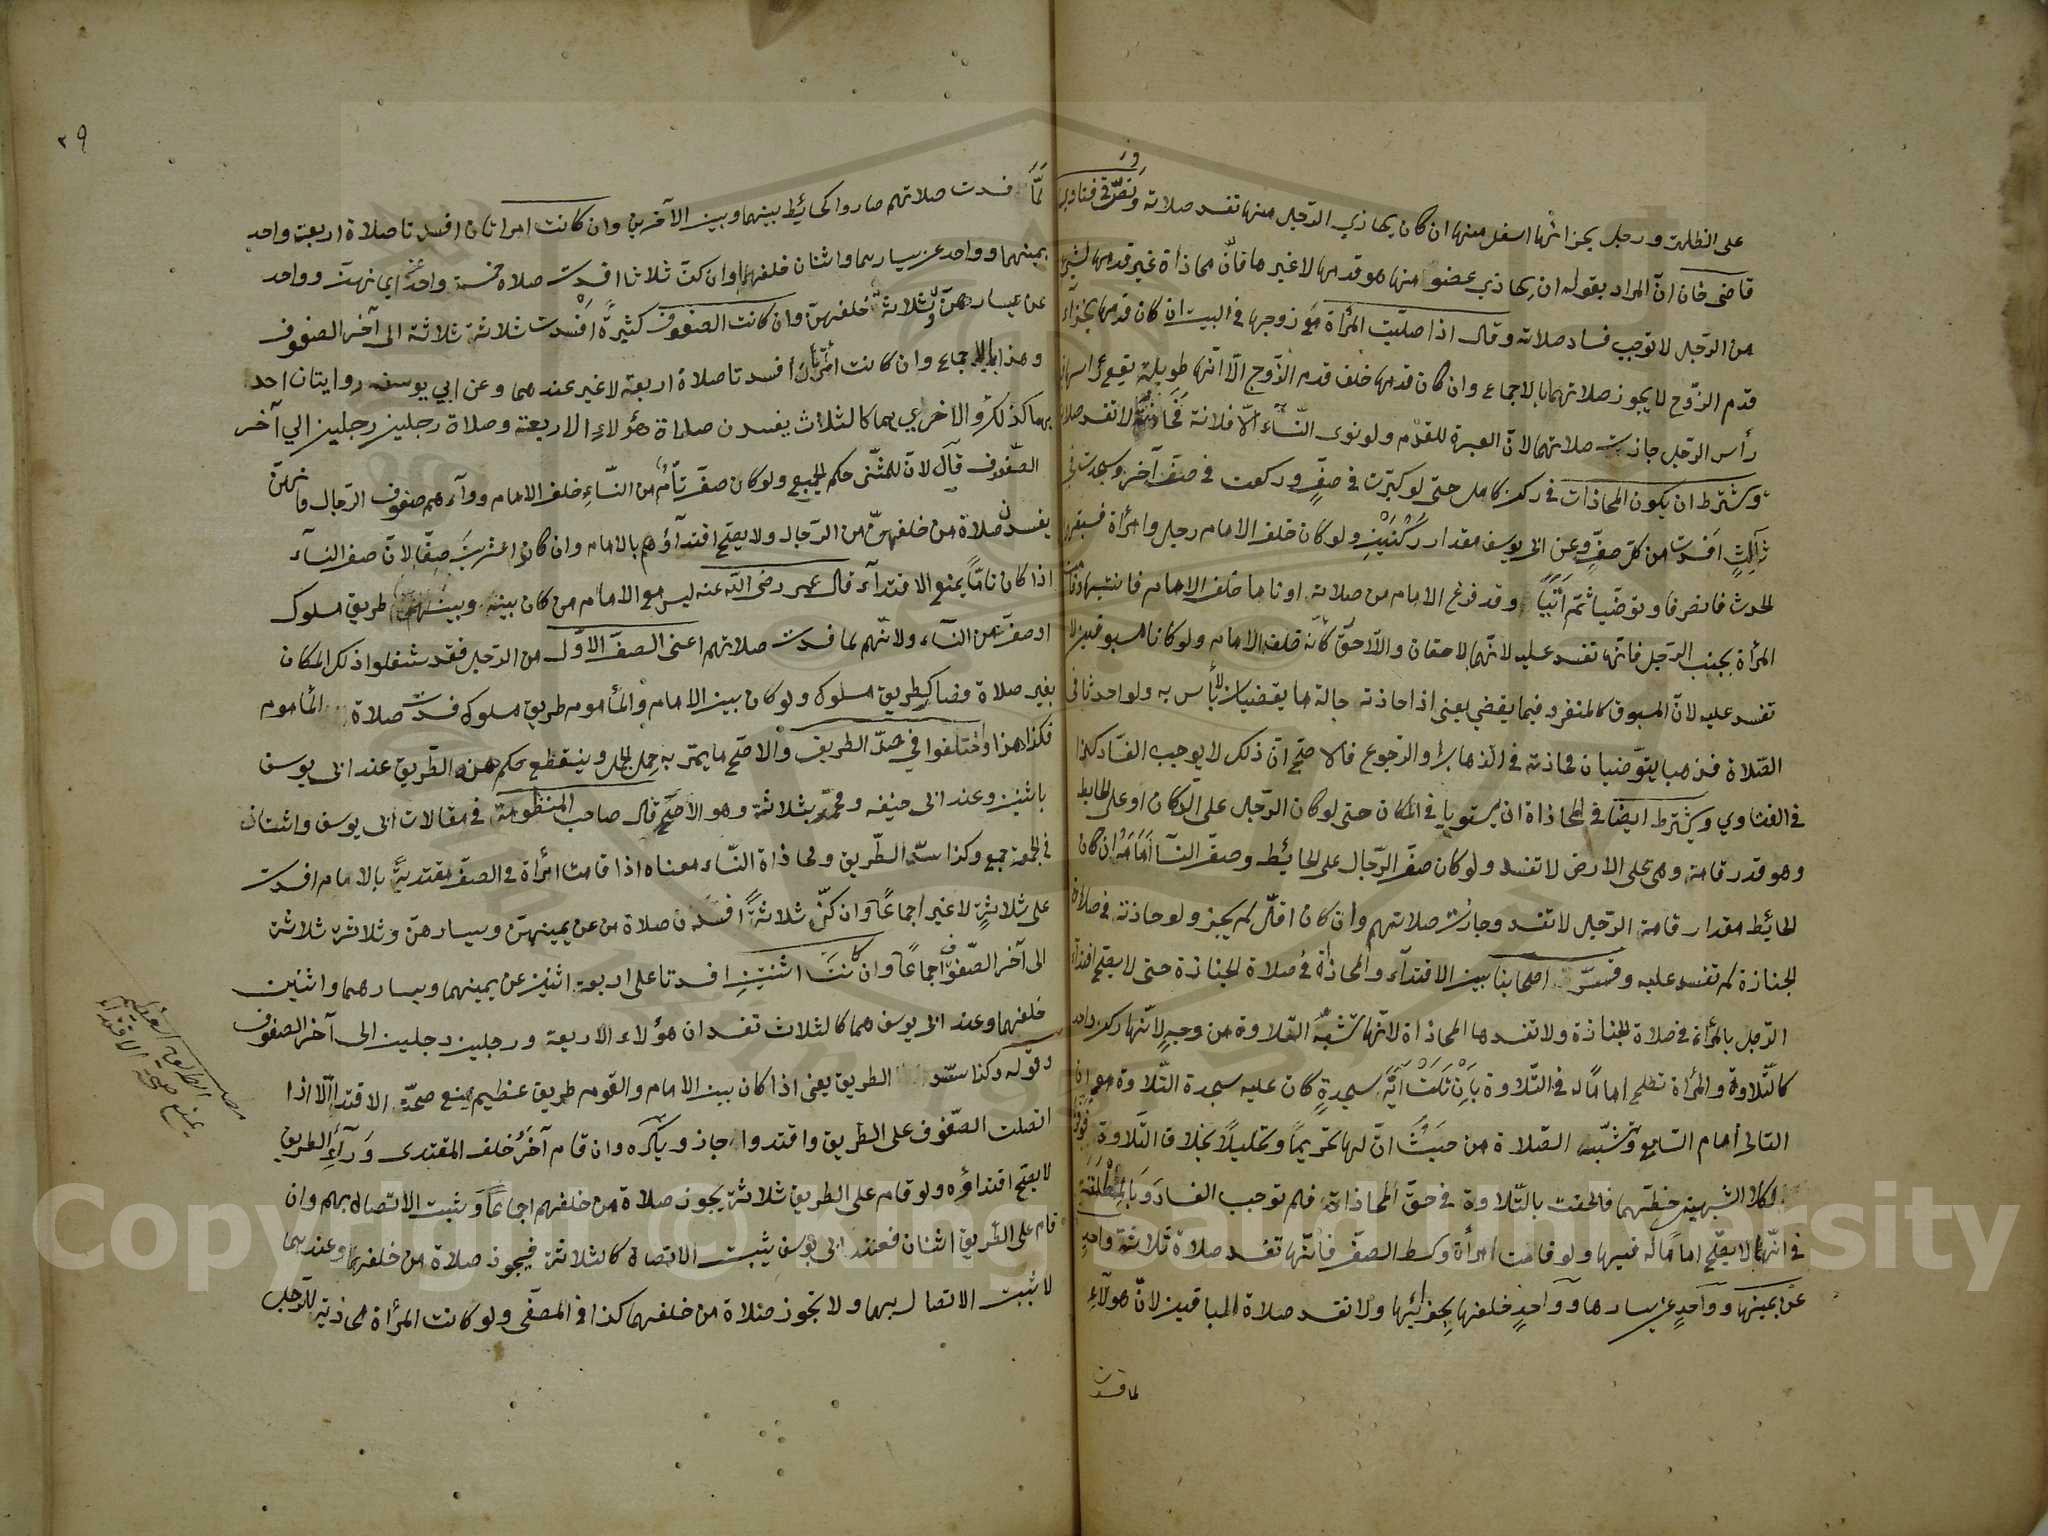 على الظلة ورجل بحذائها اسفل منها ان كان يحاذي الرجل منها تفسد صلاته ونص في فتاوي
قاضى خان انّ المراد بقوله ان يحاذي عضو منها هو قدمها لا غيرها فانّ محاذاة غير قدمها لشئ
من الرجل لا توجب فساد صلاته وقال اذا صلّت المرأة مع زوجها في البيت ان كان قدمها بحذآء
قدم الزّوج لا يجوز صلاتهما بالاجماع وان كان قدمها خلف قدم الزّوج الّا انّها طويلة يقع رأسها
رأس الرّجل جازت صلاتهما لانّ العبرة للقدم ولو نوى النّسآء الّا فلانة فحاذته لا تفسد صلاته
ويشترط ان يكون المحاذات في ركن كامل حتى لو كبّرت في صفٍّ وركعت في صفّ آخر وسجدت في
ثالثٍ افسدت من كل صفٍّ وعن ابى يوسف مقدار ركنين ولو كان خلف الامام رجل وامرأة فسبقهما
الحدث فانصرفا وتوضّيا ثمّ اتيا وقد فرغ الامام من صلاته او ناما خلف الامام فانتبها وقامت
المرأة بجنب الرّجل فانّها تفسد عليه لانّهما لاحقان واللّاحق كانّه خلف الامام ولو كانا مسبوقين لا
تفسد عليه لانّ المسبوق كالمنفرد فيما يقضي يعنى اذا حاذته حالة ما يقضيان لا بأس به ولو احدثا في
الصّلاة فذهبا يتوضّيان فحاذته في الذهاب او الرّجوع فالاصحّ انّ ذلك لا يوجب الفساد كذا
في الفتاوي ويشترط ايضا في المحاذاة ان يستويا في المكان حتى لو كان الرّجل على الدّكان او على الحايط
وهو قدر قامة وهى على الارض لا تفسد ولو كان صفّ الرّجال على الحائيط وصفّ النسآ امامه ان كان
الحايط مقدار قامة الرّجل لا تفسد وجازت صلاتهم وان كان اقلّ لم يجز ولو حاذته في صلاة
الجنازة لم تفسد عليه وفسّر اصحابنا بين الاقتدآء والمحاذاة في صلاة الجنازة حتى لا يصلح اقتدآء
الرّجل بالمرأة في صلاة الجنازة ولا تفسدها المحاذاة لانّها تشبه التلاوة من وجهٍ لانّها ركن واحد
كالتّلاوة والمرأة تصلح اماما له في التّلاوة بأن تلت آية سجدةٍ كان عليه سجدة التّلاوة معها
التالى أمام السّامع وتشبّه الصّلاة من حيث انّ لها تحريما وتحليلًا بخلاف التّلاوة
لكلا الشبهين حظّهما فالحقت بالتّلاوة في حقّ المحاذاة فلم توجب الفساد وبالمطلقة
في انّها لا يصلح اماما له فيها ولو قامت امرأة وسط الصفّ فانّها تفسد صلاة ثلاثة واحدٍ
عن يمينها وواحدٍ عن يسارها وواحدٍ خلفها بحذائيها ولا تفسد صلاة الباقين لانّ هولآءِ
لما فسدت
٢٩
لمّا فسدت صلاتهم صاروا كحائيط بينهما وبين الآخرين وان كانت امراتان افسدتا صلاة اربعة واحد
بيمينهما وواحد عن يسارهما واثنان خلفهما وان كنّ ثلاثا افسدت صلاة خمسة واحد عن ايمانهنّ وواحد
عن يسارهنّ وثلاثة خلفهنّ وان كانت الصفوف كثيرة افسدت ثلاثة ثلاثة الى آخر الصفوف
وهذا بالاجماع وان كانت امرأتان افسدتا صلاة اربعة لا غير عندهما وعن ابي يوسف روايتان احد
بهما كذلك والاخري بهما كالثلاث يفسدن صلاة هؤلاءِ الاربعة وصلاة رجلين رجلين الي آخر
الصّفوف قال لانّ للمثنّى حكم الجمع ولو كان صفّ تامّ من النّساءِ خلف الامام وورآءهم صفوف الرّجال فانهنّ
يفسدن صلاة من خلفهنّ من الرّجال ولا يصلح اقتدآؤهم بالامام وان كان عشرين صفّا لانّ صف النسآء
اذا كان تامّا يمنع الاقتدآء قال عمر رضى اللّه عنه ليس مع الامام من كان بينه وبينهم طريق مسلوك
او صفّ من النسآء ولانّهم لما فسدت صلاتهم اعنى الصفّ الاوّل من الرّجل فقد شغلوا ذلك المكان
بغير صلاة فصار كطريق مسلوك ولو كان بين الامام والمأموم طريق مسلوك فسدت صلاة المأموم
فكذا هذا واختلفوا في حدّ الطريق والاصّح ما يمرّ به حِمل الجمل وينقطع حكم هذه الطّريق عند ابى يوسف
باثنين وعند ابى حنيفه ومحمّد بثلاثة وهو الاصّح قال صاحب المنظومة في مقالات ابى يوسف واثنان
في الجمعة جمع وكذا سدّ الطّريق ومحاذاة النّساء معناه اذا قامت امرأة في الصفّ مقتديةً بالامام افسدت
على ثلاثةٍ لا غير اجماعًا وان كنّ ثلاثةً افسدن صلاة من عن يمينهنّ ويسارهنّ وثلاثة ثلاثة
الى آخر الصّفوف اجماعًا وان كانتا اثنتين افسدتا على اربعة اثنين عن يمينهما ويسارهما واثنين
خلفهما وعند ابى يوسف هما كالثلاث تفسدان هؤلاء الاربعة ورجلين رجلين الى آخر الصفوف
وقوله وكذا سدّ الطريق يعنى اذا كان بين الامام والقوم طريق عظيم يمنع صحّة الاقتدا الّا اذا
اتصلت الصّفوف على الطّريق واقتدوا جاز ويكره وان قام آخر خلف المقتدى ورآءِ الطريق
لا يصحّ اقتداؤه ولو قام على الطريق ثلاثة يجوز صلاة من خلفهم اجماعًا وثبت الاتصال بهم وان
قام على الطّريق اثنان فعند ابى يوسف يثبت الاتصال كالثلاثة فيجوز صلاة من خلفهما وعندهما
لا يثبت الاتصال بهما ولا تجوز صلاة من خلفهما كذا في المصفّى ولو كانت المرأة محاذية للرّجل
الطريق العظيم
يمنع صحة الاقتداء
Copyright © King Saud University